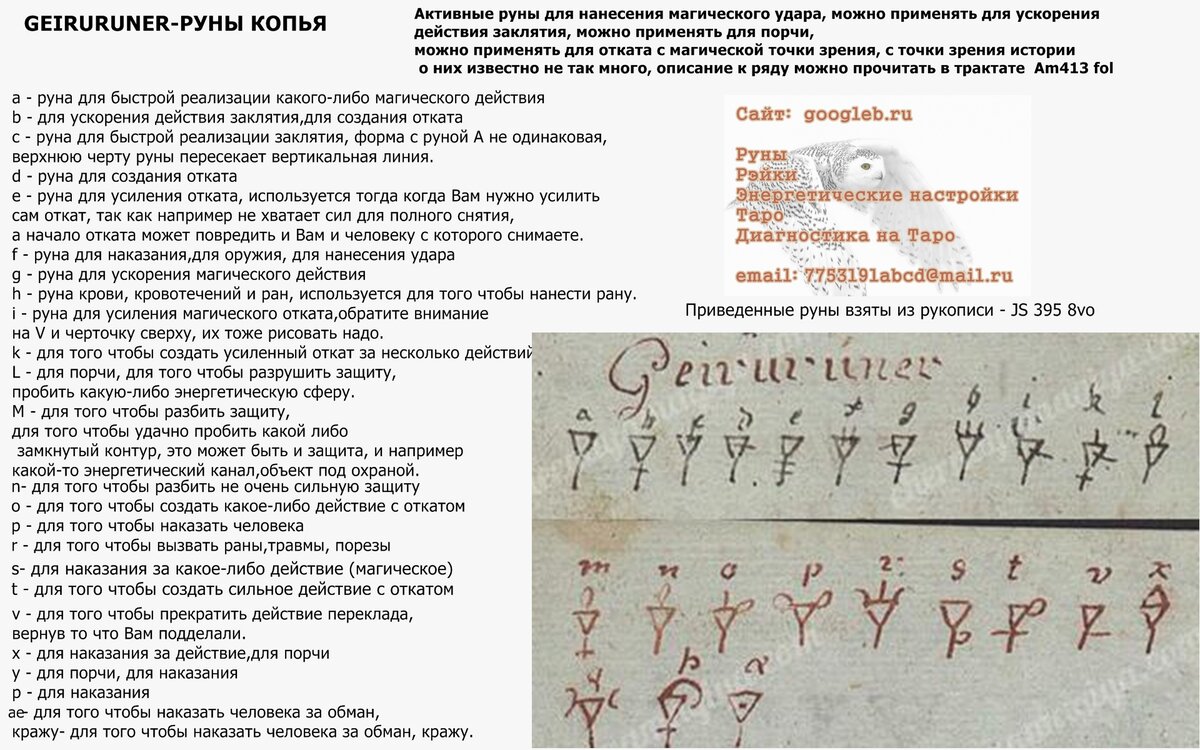 GEIRURUNER-РУНЫ КОПЬЯ
Активные руны для нанесения магического удара, можно применять для ускорения
действия заклятия, можно применять для порчи,
можно применять для отката с магической точки зрения, с точки зрения истории
о них известно не так много, описание к ряду можно прочитать в трактате Am413 fol
a - руна для быстрой реализации какого-либо магического действия
b - для ускорения действия заклятия,для создания отката
c - руна для быстрой реализации заклятия, форма с руной А не одинаковая,
верхнюю черту руны пересекает вертикальная линия.
d - руна для создания отката
e - руна для усиления отката, используется тогда когда Вам нужно усилить
сам откат, так как например не хватает сил для полного снятия,
а начало отката может повредить и Вам и человеку с которого снимаете.
f - руна для наказания,для оружия, для нанесения удара
g - руна для ускорения магического действия
h - руна крови, кровотечений и ран, используется для того чтобы нанести рану.
i - руна для усиления магического отката,обратите внимание
на V и черточку сверху, их тоже рисовать надо.
k - для того чтобы создать усиленный откат за несколько действий
L - для порчи, для того чтобы разрушить защиту,
пробить какую-либо энергетическую сферу.
M - для того чтобы разбить защиту,
для того чтобы удачно пробить какой либо
замкнутый контур, это может быть и защита, и например
какой-то энергетический канал,объект под охраной.
n- для того чтобы разбить не очень сильную защиту
o - для того чтобы создать какое-либо действие с откатом
p - для того чтобы наказать человека
r - для того чтобы вызвать раны,травмы, порезы
s- для наказания за какое-либо действие (магическое)
t - для того чтобы создать сильное действие с откатом
v - для того чтобы прекратить действие переклада,
вернув то что Вам подделали.
x - для наказания за действие,для порчи
y - для порчи, для наказания
p - для наказания
ae- для того чтобы наказать человека за обман,
кражу- для того чтобы наказать человека за обман, кражу.
Сайт: googleb.ru
Руны
Рэйки
Энергетические настройки
Таро
Диагностика на Таро
email: 7753191abcd@mail.ru
Приведенные руны взяты из рукописи - JS 395 8vo
Geiruruner
a b c d e f g h i k l
m n o p r s t v x
y þ æ